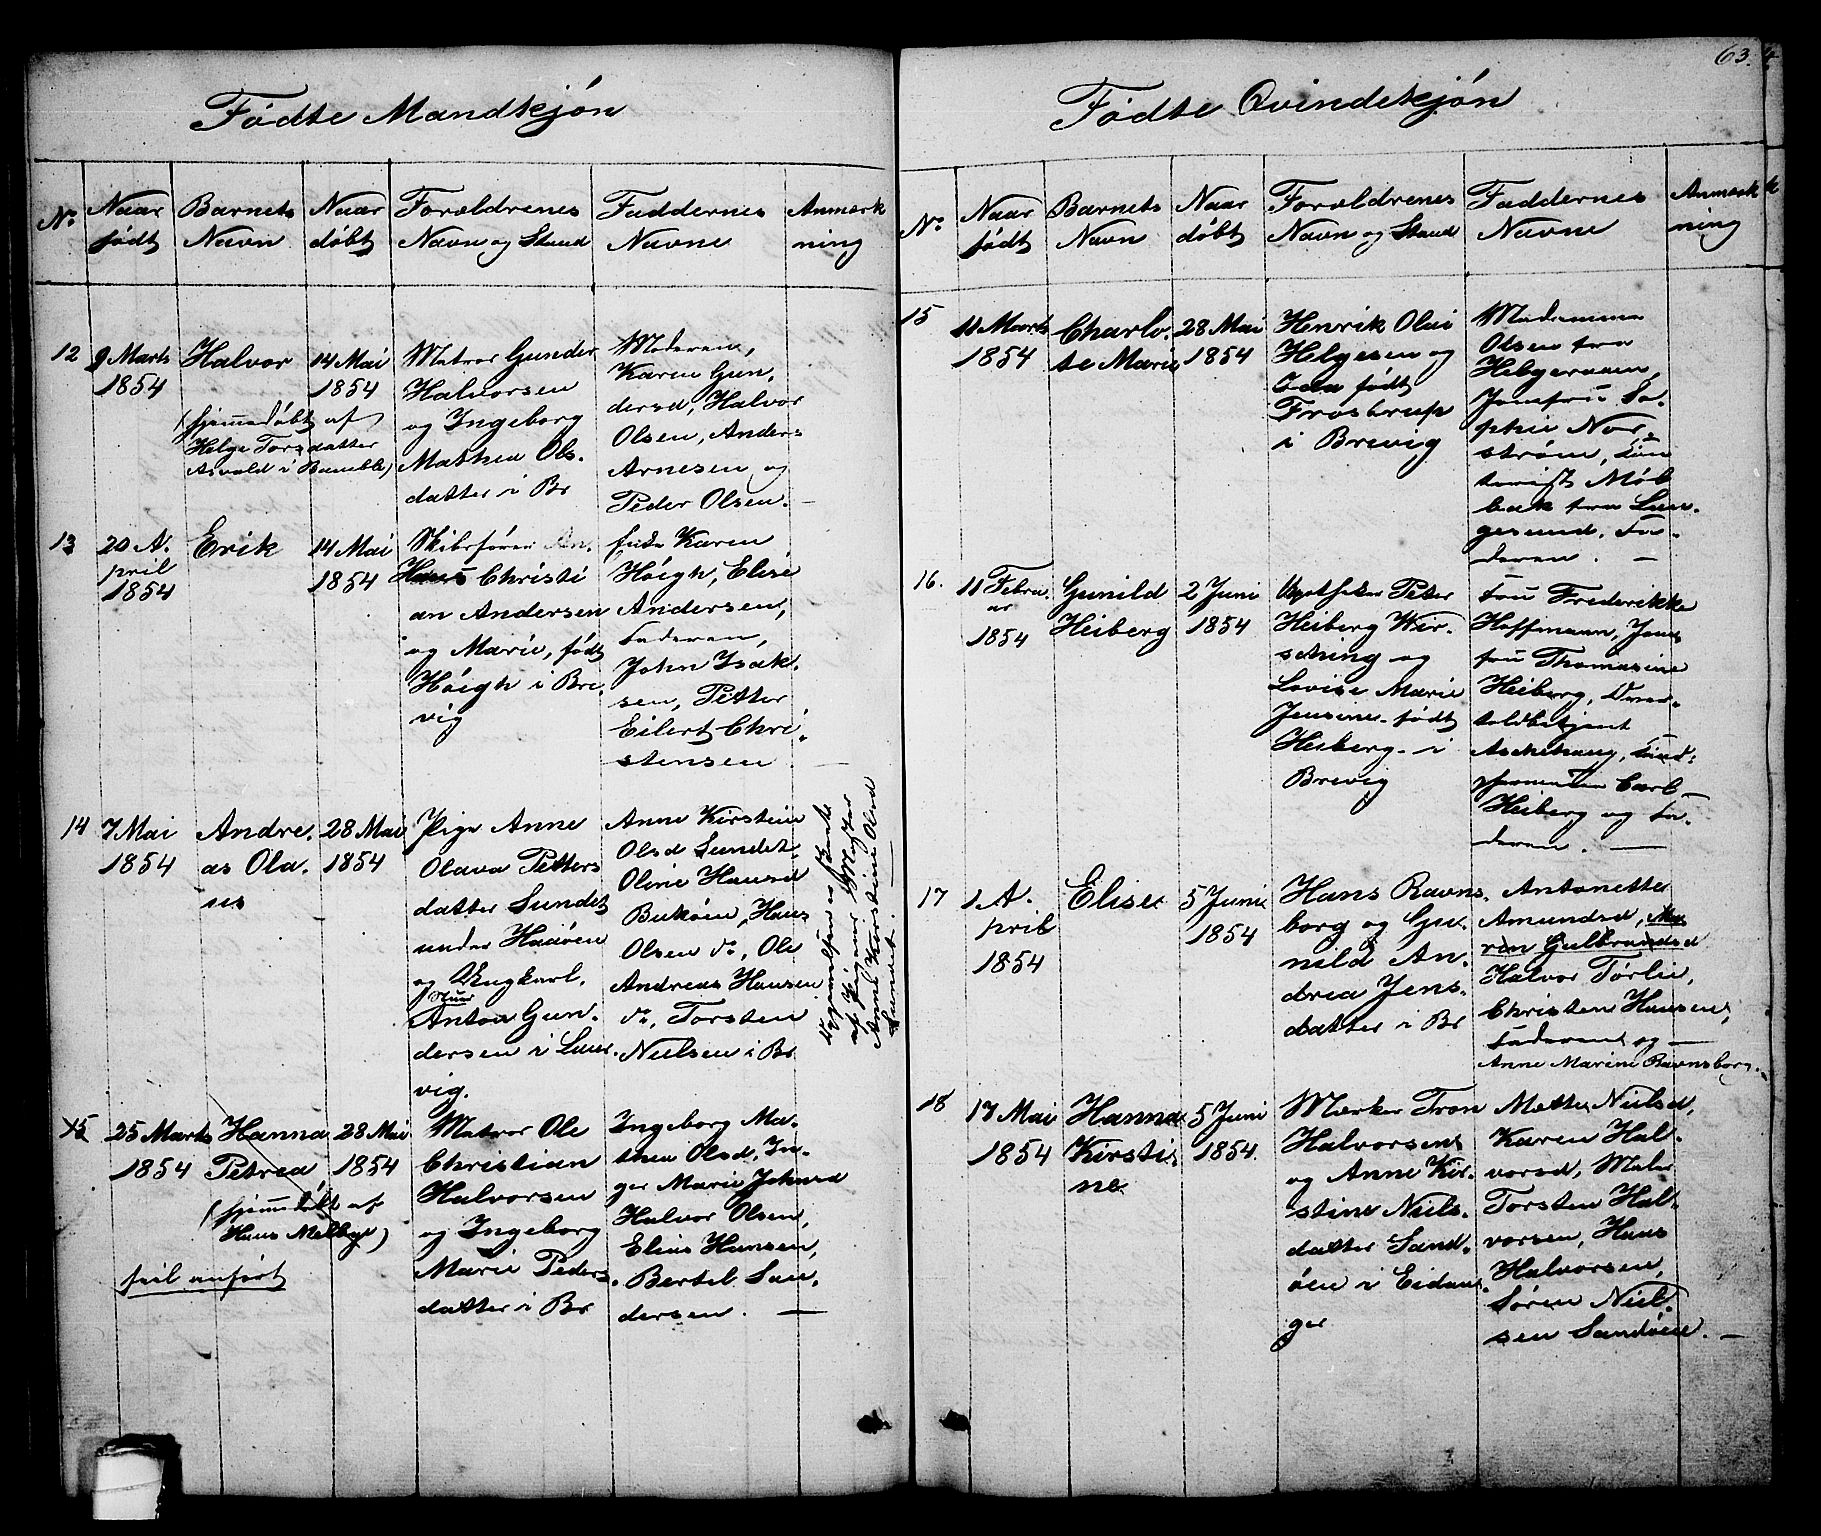 63.
Fødte Mandkjön
No.
Naar
født
Barnets
Navn
Naar
döbt
Forældrenes
Navn og Stand
Faddernes
Navne
Anmærk
ning
12
9 Marts
1854
Halvor
(hjemmedöbt af
Helge Torsdatter
Asvald i Bamble)
14 Mai
1854
Matros Gunder
Halvorsen
og Ingeborg
Mathea Ols.
datter i Br
Moderen,
Karen Gun.
dersd, Halvor
Olsen, Anders
Arnesen og
Peder Olsen.
13
20 A.
pril
1854
Erik
14 Mai
1854
Skibsfører An.
Hans Christi
an Andersen
og Marie, født
Höigh i Bre.
vig
Karen
Höigh, Elise
Andersen,
Faderen,
John Isak.
sen, Petter
Eilert Chri.
stensen
14
7 Mai
1854
Andre.
as Ola.
us
28 Mai
1854
Pige Anne
Olava Petters
datter Sundet
under Haaöen
og Ungkarl.
Anton Gun.
dersen i Laur.
vig.
Anne Kirstine
Olsd Sundet.
Oline Hansd
Buköen, Hans
Olsen do, Ole
Andreas Hansen
do, Torsten
Nielsen i Br
af Pigens Moster
Anne Kirstine Olsd
Sundet.
15
25 Marts
1854
Hanna
Petrea
(hjemmedöbt af
Hans Melbye)
feil anført
28 Mai
1854
Matros Ole
Christian
Halvorsen
og Ingeborg
Marie Peders.
datter i Br
Ingeborg Ma.
thea Olsd, In.
ger Marie Johnsd
Halvor Olsen,
Elias Hansen,
Bertel San.
dersen.
Fødte Qvindekjön
No.
Naar
født
Barnets
Navn
Naar
döbt
Forældrenes
Navn og Stand
Faddernes
Navne
Anmærk
ning
15
11 Marts
1854
Charlo.
te Marie
28 Mai
1854
Henrik Olai
Helgesen og
født
Frostrup
i Brevig
Madamme
Olsen fra
Helgeraaen,
Jomfru So.
phie Nor.
ström, Con
torist Møl
bak fra Lan.
gesund, Fa.
deren.
16.
11 Febru.
ar
1854
Gunild
Heiberg
2 Juni
1854
Apotheker Peter
Heiberg Wir.
sching og
Lovise Marie
Jensine født
Heiberg i
Brevig
Fru Frederikke
Hoffmann, Jom
fru Thomasine
Heiberg, Over.
toldbetjent
Carl
Heiberg og Fa.
deren.
17
1 A.
pril
1854
Elise
5 Juni
1854
Hans Ravns.
borg og Gu.
nild An.
drea Jens.
datter i Br
Antonette
Amundsd, Ma
ren Gulbrandsd
Halvor Törlie,
Christen Hansen,
Faderen og
Anne Marine Ravnsborg.
18
17 Mai
1854
Hanna
Kirsti.
ne
5 Juni
1854.
Mærker Tron
Halvorsen
og Anne Kir.
stine Niels.
datter Sand.
öen i Eidan.
ger
Mette Nielsd,
Karen Hal.
vorsd, Maler
Torsten Hal.
vorsen, Hans
Halvorsen,
Sören Niel.
sen Sandöen.